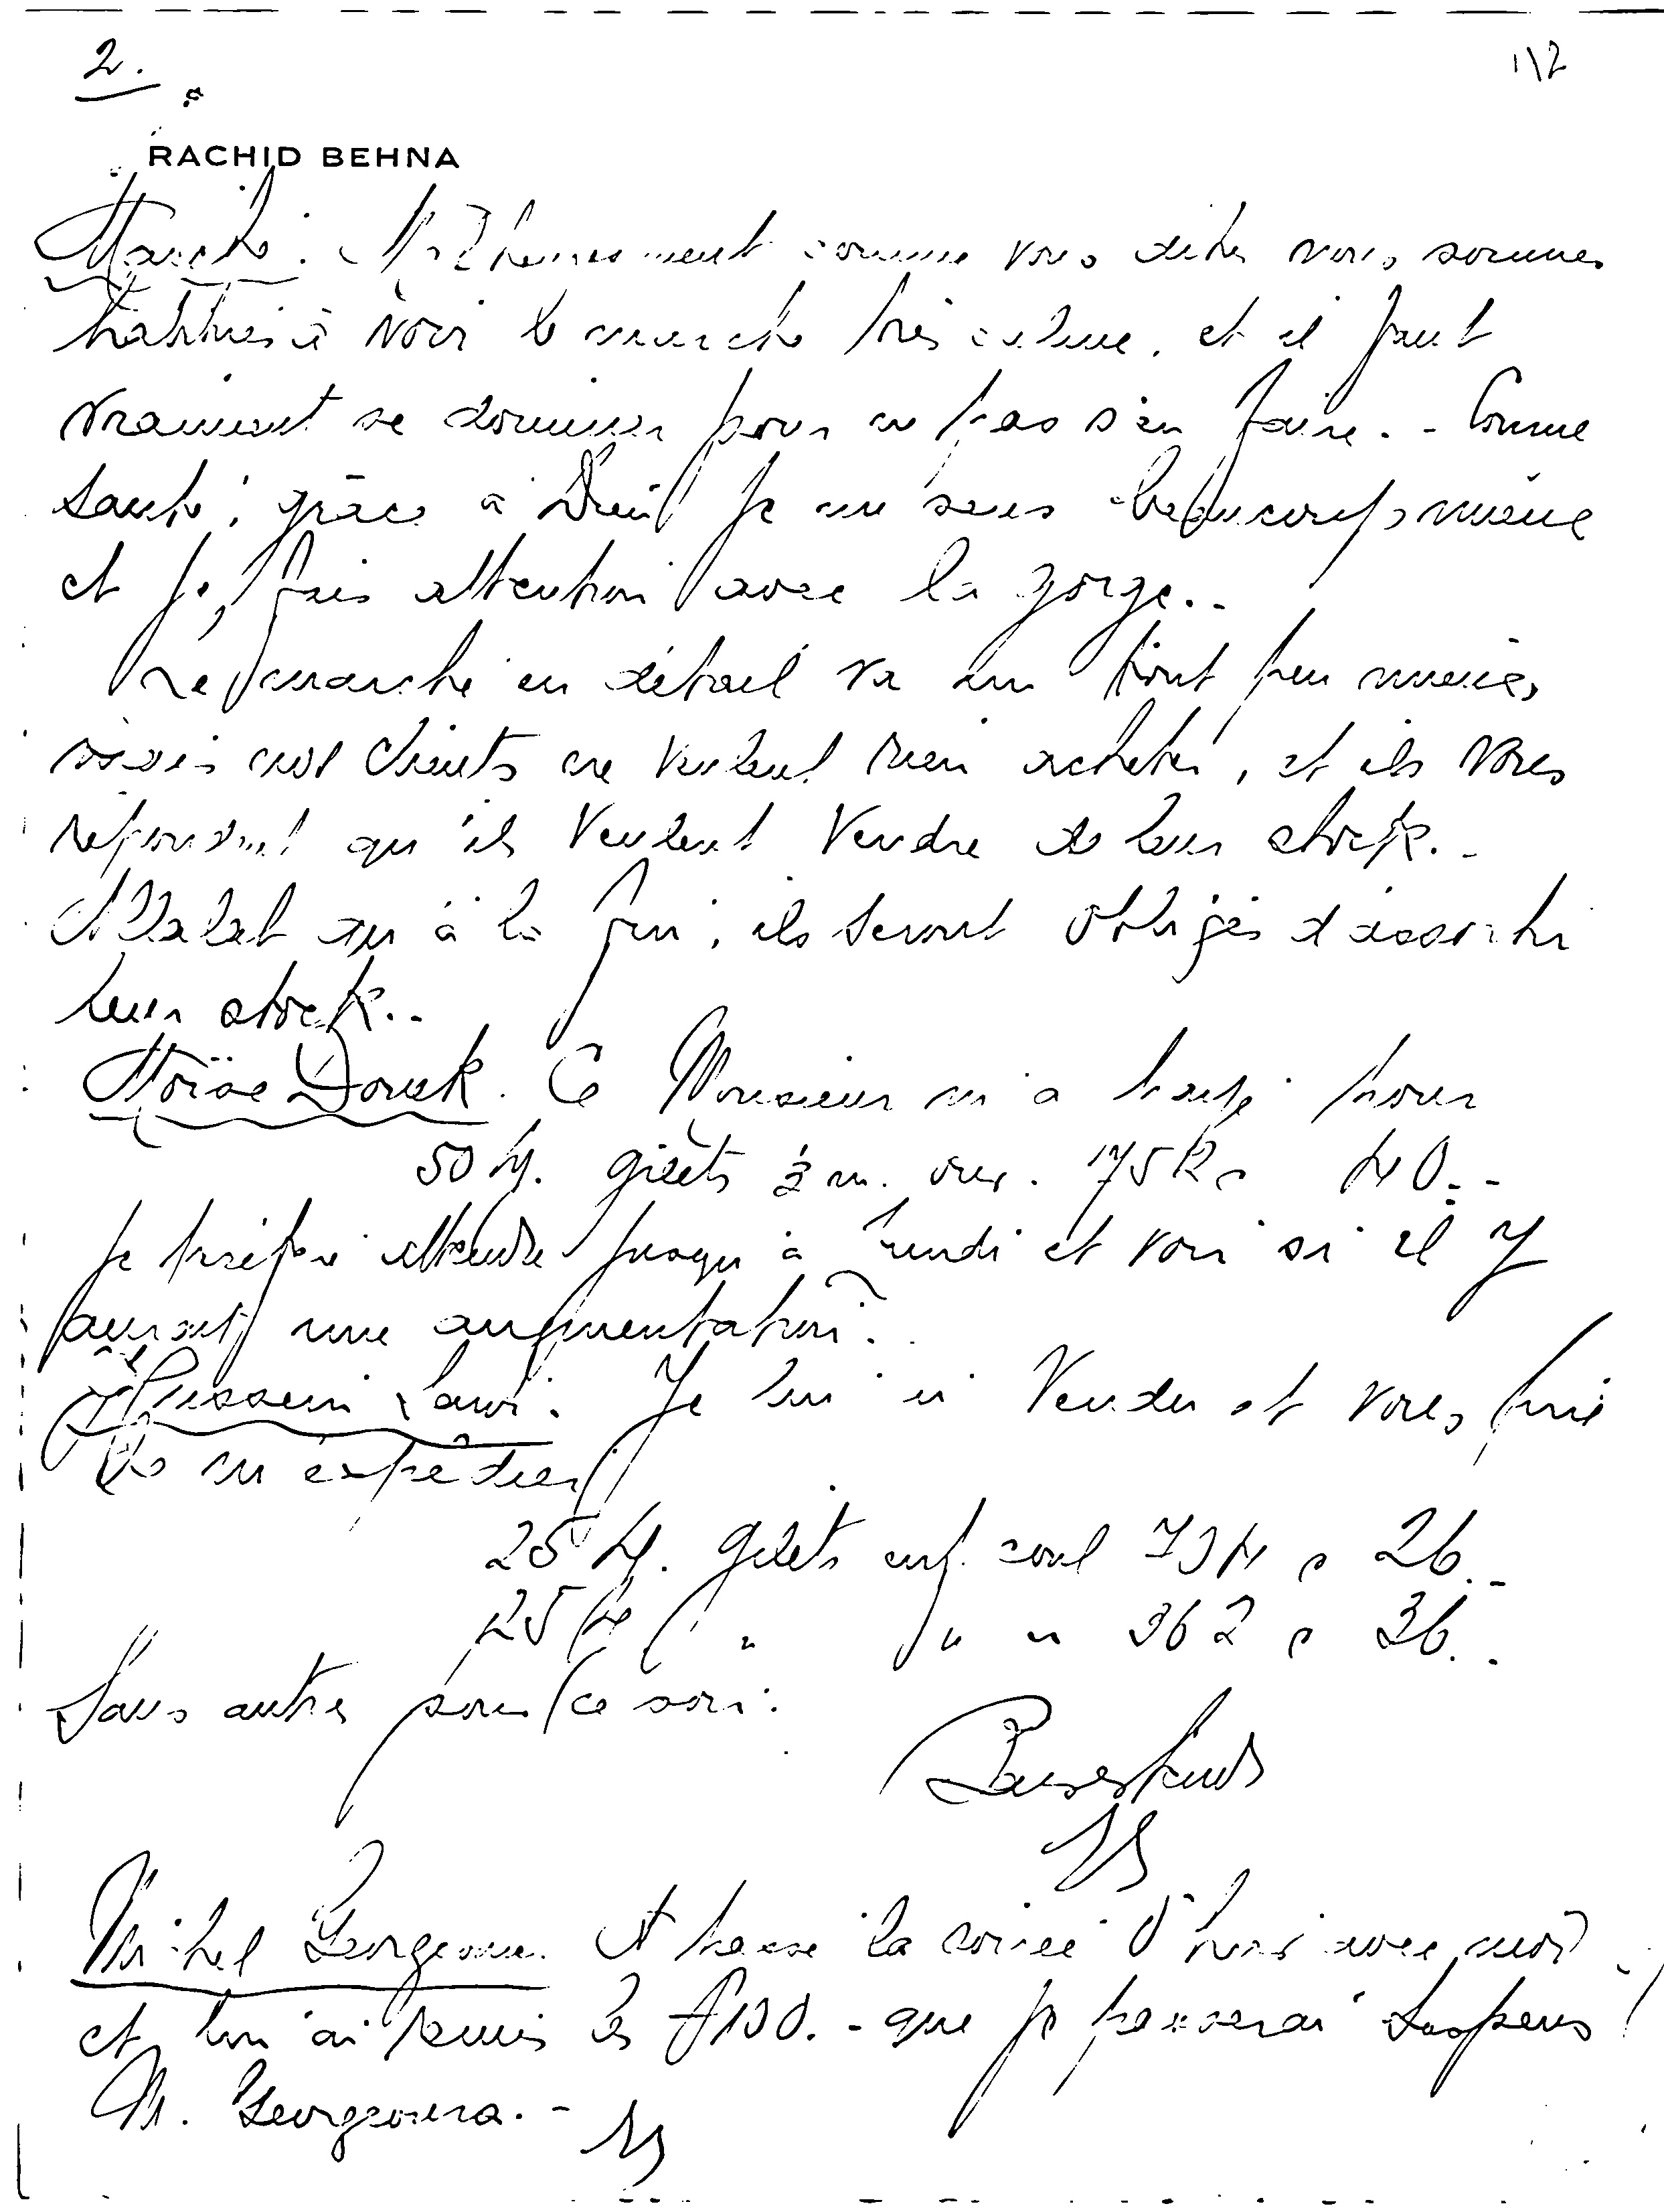 2.
112
RACHID BEHNA
Marché. Malheureusement comme vous dites nous sommes
habitués à voir le marché très calme, et il faut
vraiment se dominer pour ne pas s'en faire. - Comme
santé, grâce à Dieu je me sens beaucoup mieux
et je fais attention avec la gorge. -
Le marché en détail va un tout peu mieux,
mais nos clients ne veulent rien acheter, et ils vous
répondent qu'ils veulent vendre de leur stock. -
qu'à la fin, ils seront obligés d'assortir
leur stock. -
Moïse Douek. Ce Monsieur m'a
50 gilets 175 40. -
Je préfère attendre jusqu'à lundi et voir si il y
aurait une augmentation.
Hussein Lawi. Je lui ai vendu et vous prie
de m'expédier
25 gilets enf. coul 734 a 26. -
25 " " " 362 a 36. -
Sans autres pour ce soir.
Michel Georgeoura. A passé la soirée d'hier avec moi
et lui ai remis les £100. - que je passerai
M. Georgeoura. -